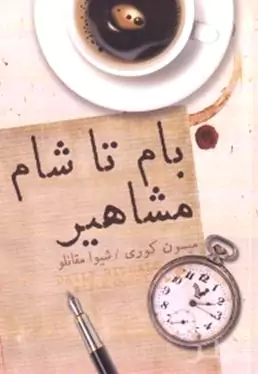 بام تا شام
مشاهیر
میسون کوری / شیوا مقانلو
DAILY RITUALS